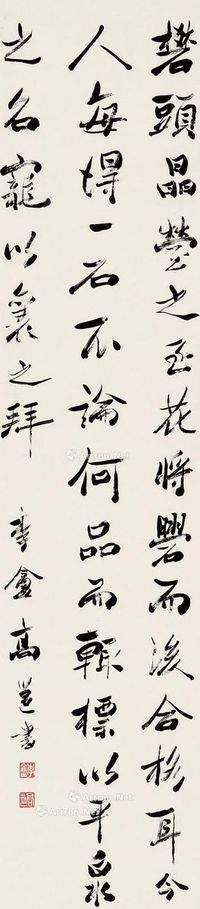 礬頭晶瑩之至花將礬而後合杉耳今
人每得一石不論何品而輒標以平泉
之名寵以襄之拜
李盦高邕書
Artron.Net